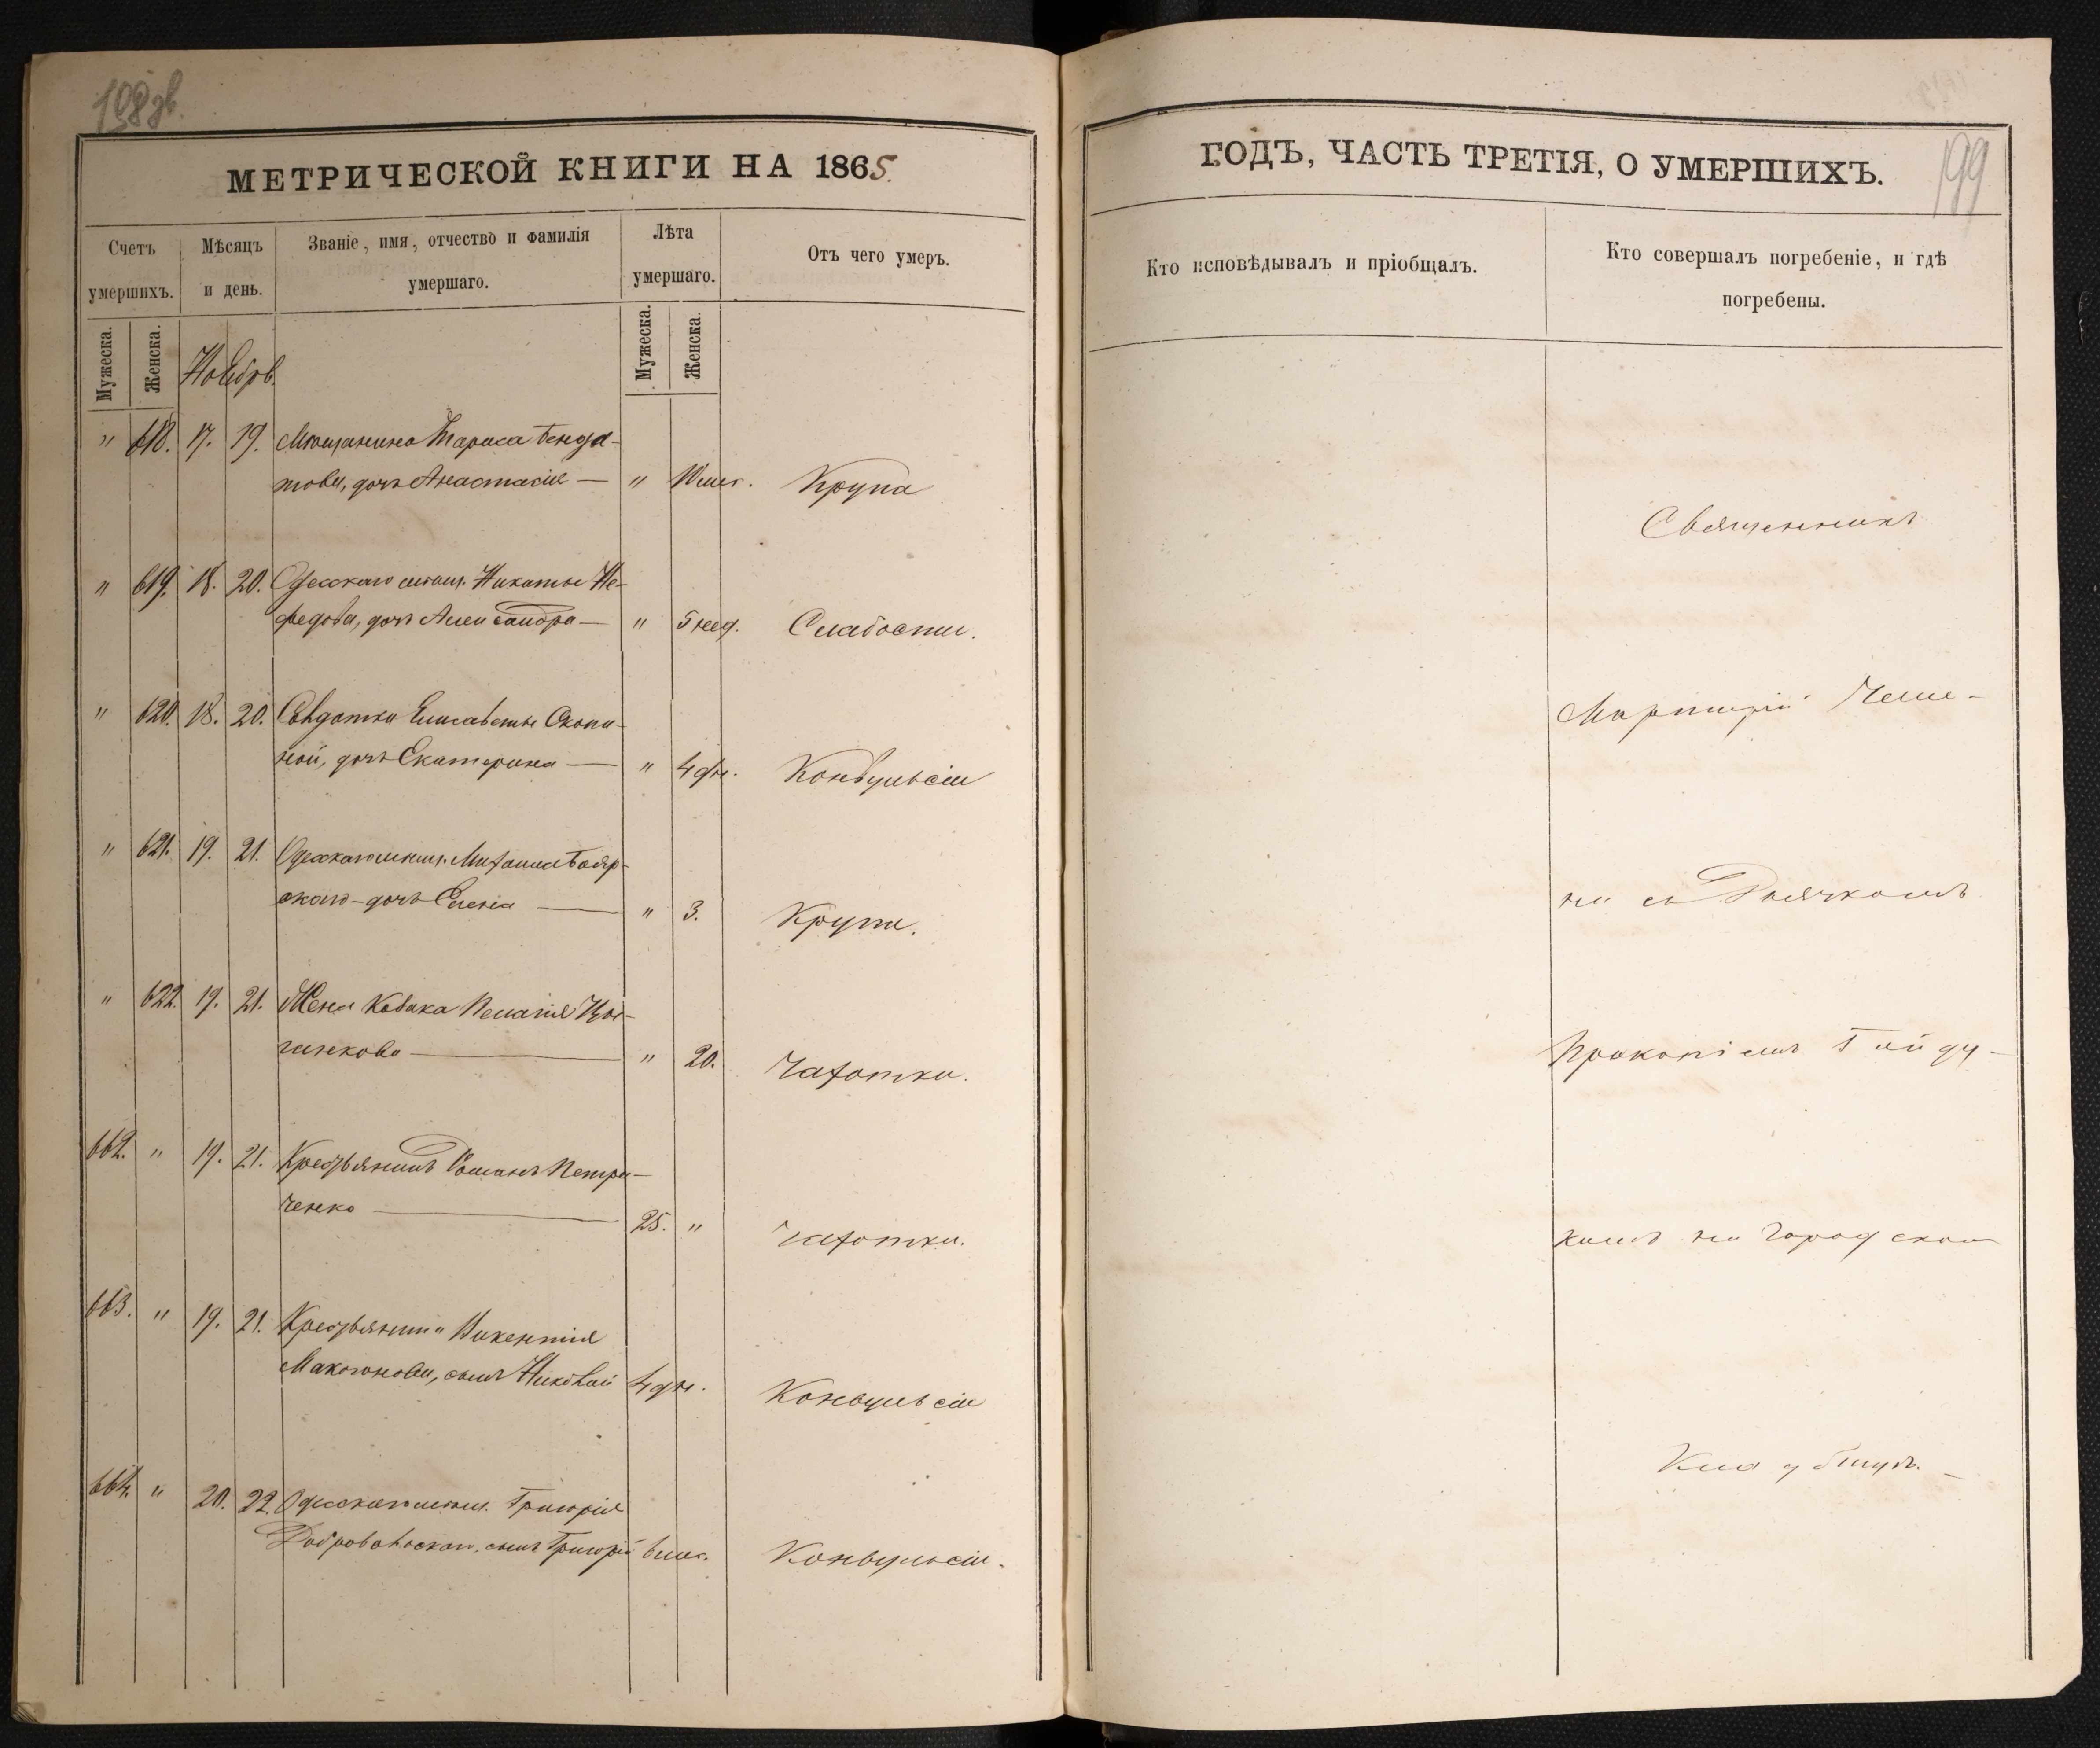 198 зв.
МЕТРИЧЕСКОЙ КНИГИ НА 1865.
Счетъ умершихъ.
Мѣсяцъ и день.
Званіе, имя, отчество и фамилія умершаго.
Лѣта умершаго.
Отъ чего умеръ.
Мужеска.
Женска.
Ноябрь.
Мужеска.
Женска.
" 618. 17. 19. Мѣщанина Тараса
това, дочь Анастасія — " 10 мѣс. Крупа
" 619. 18. 20. Одесскаго мѣщ. Никиты Не-
федова, дочь Александра — " 5 нед. Слабости.
" 620. 18. 20. Солдатки Елисаветы
ной, дочь Екатерина — " 4 дн. Конвульсіи
" 621. 19. 21. Одесскаго мѣщ. Михаила Бояр-
скаго - дочь Елена — " 3. Крупа.
" 622. 19. 21. Жена Пелагія Цы-
ганкова — " 20. Чахотки.
662. " 19. 21. Крестьянинъ Романъ Петри-
ченко — 25. " Чахотки.
663. " 19. 21. Крестьянина Викентія
Макогонова, сынъ Николай 4 дн. Конвульсіи
664. " 20. 22. Одесскаго мѣщ. Григорія
Добровольскаго, сынъ Григорій 6 мѣс. Конвульсіи.
ГОДЪ, ЧАСТЬ ТРЕТІЯ, О УМЕРШИХЪ.
199
Кто исповѣдывалъ и пріобщалъ.
Кто совершалъ погребеніе, и гдѣ погребены.
Священникъ
Мартирій Чеме-
на съ Дьячкомъ
Прокопіемъ Гайду-
комъ на городскомъ
Кладбищѣ.